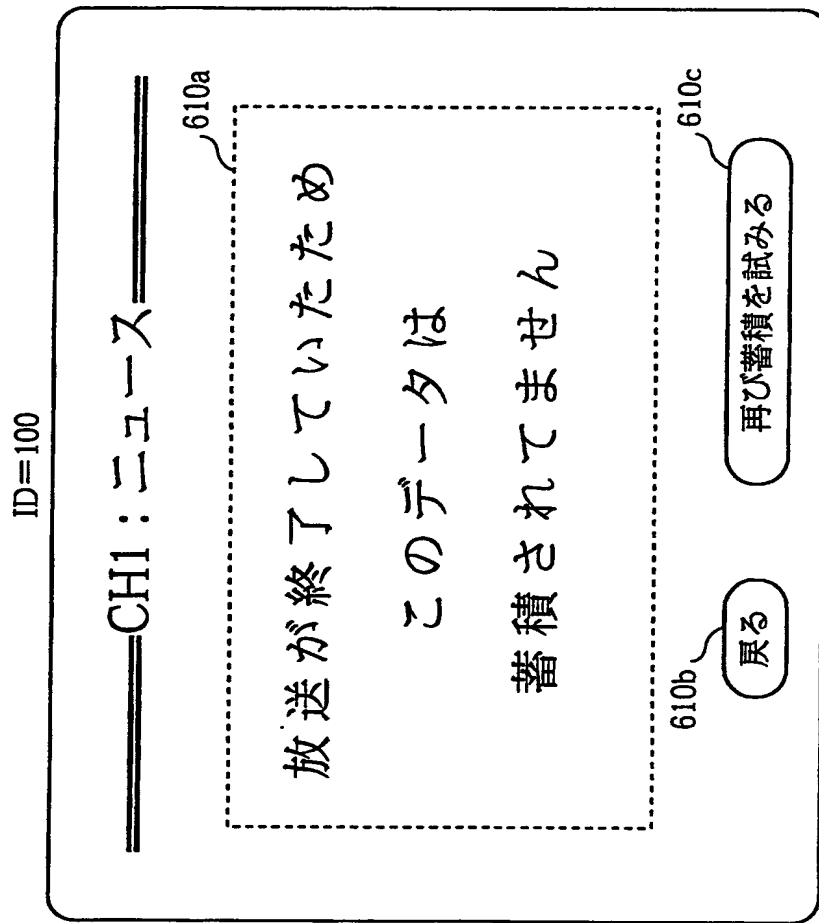 ID=100
CH1:ニュース
610a
放送が終了していたため
このデータは
蓄積されてません
610b
戻る
610c
再び蓄積を試みる